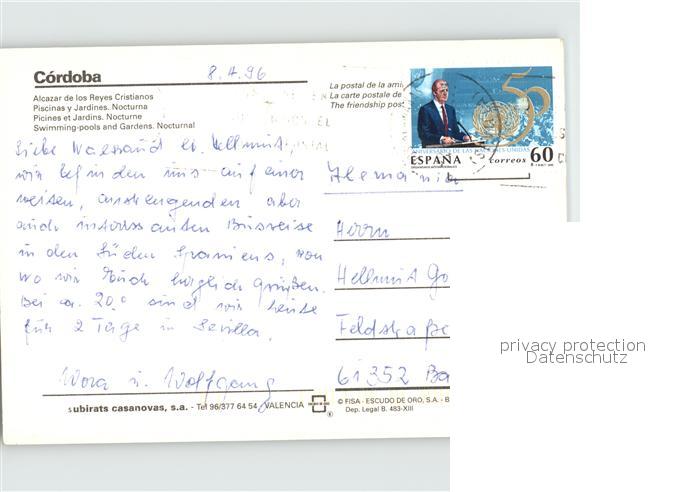 Córdoba
8.4.96
Alcazar de los Reyes Cristianos
Piscinas y Jardines. Nocturna
Picines et Jardins. Nocturne
Swimming-pools and Gardens. Nocturnal
La postal de la ami
La carte postale de
The friendship post
50
ANIVERSARIO DE LAS NACIONES UNIDAS
ESPAÑA correos 60
Liebe Waltraud u. Hellmut,
wir befinden uns auf einer
weiten, anstrengenden aber
auch interessanten Busreise
in den Süden Spaniens, von
wo wir Euch herzlich grüßen.
Bei ca. 20° sind wir heute
für 2 Tage in Sevilla.
u. Wolfgang
Alemania
Herrn
Hellmut Go
Feldstraße
61352 Ba
subirats casanovas, s.a. - Tel 96/377 64 54 VALENCIA
© FISA - ESCUDO DE ORO, S.A. - B
Dep. Legal B. 483-XIII
privacy protection
Datenschutz